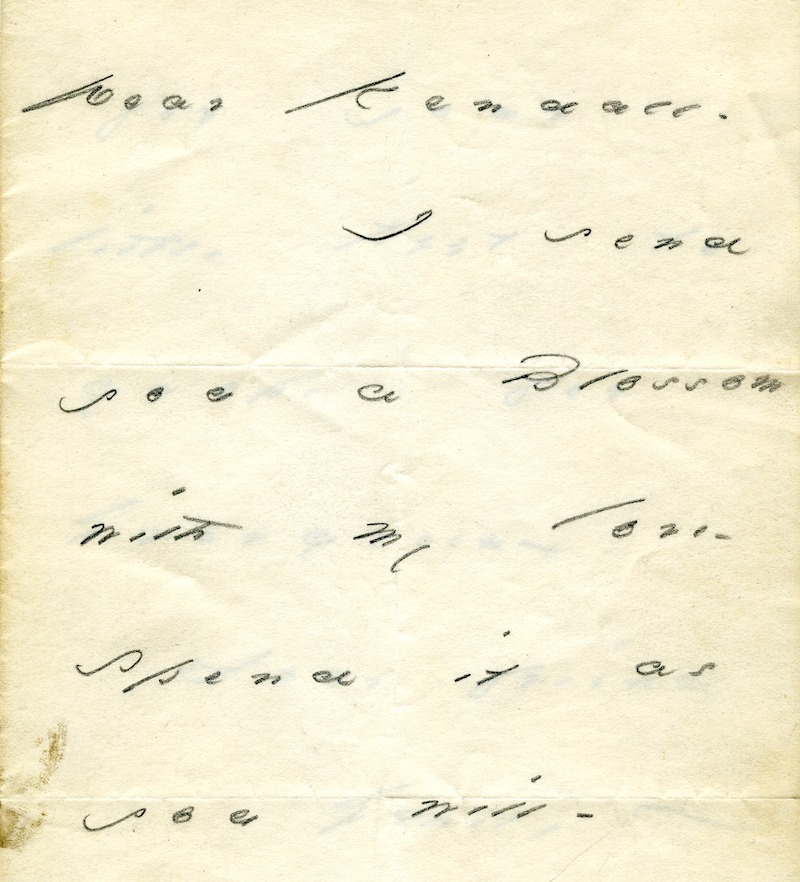 Dear Kendall.
I send
you a Blossom
with my love -
Spend it as
you will -